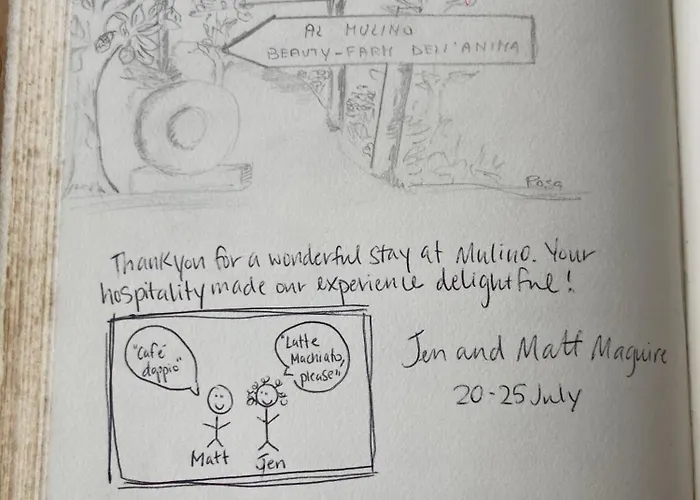 AL MULINO
BEAUTY-FARM DELL'ANIMA
Rosa
Thankyou for a wonderful stay at Mulino. Your
hospitality made our experience delightful!
"Café
doppio"
"Latte
Machiato,
please"
Matt
Jen
Jen and Matt Maguire
20-25 July